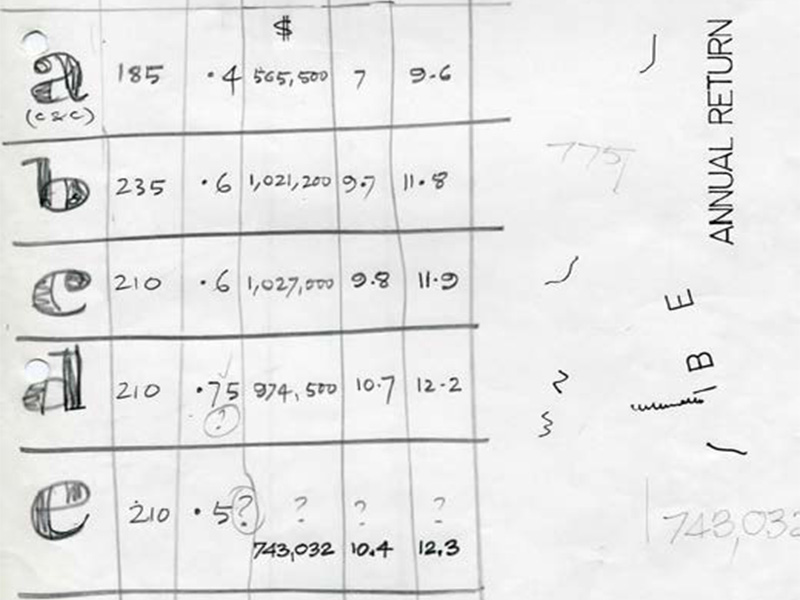 $
a 185 .4 565,500 7 9.6
(c&c)
b 235 .6 1,021,200 9.7 11.8
c 210 .6 1,027,000 9.8 11.9
d 210 .75 974,500 10.7 12.2
?
e 210 .5? ? ? ?
743,032 10.4 12.3
775
ANNUAL RETURN
B E
743,032